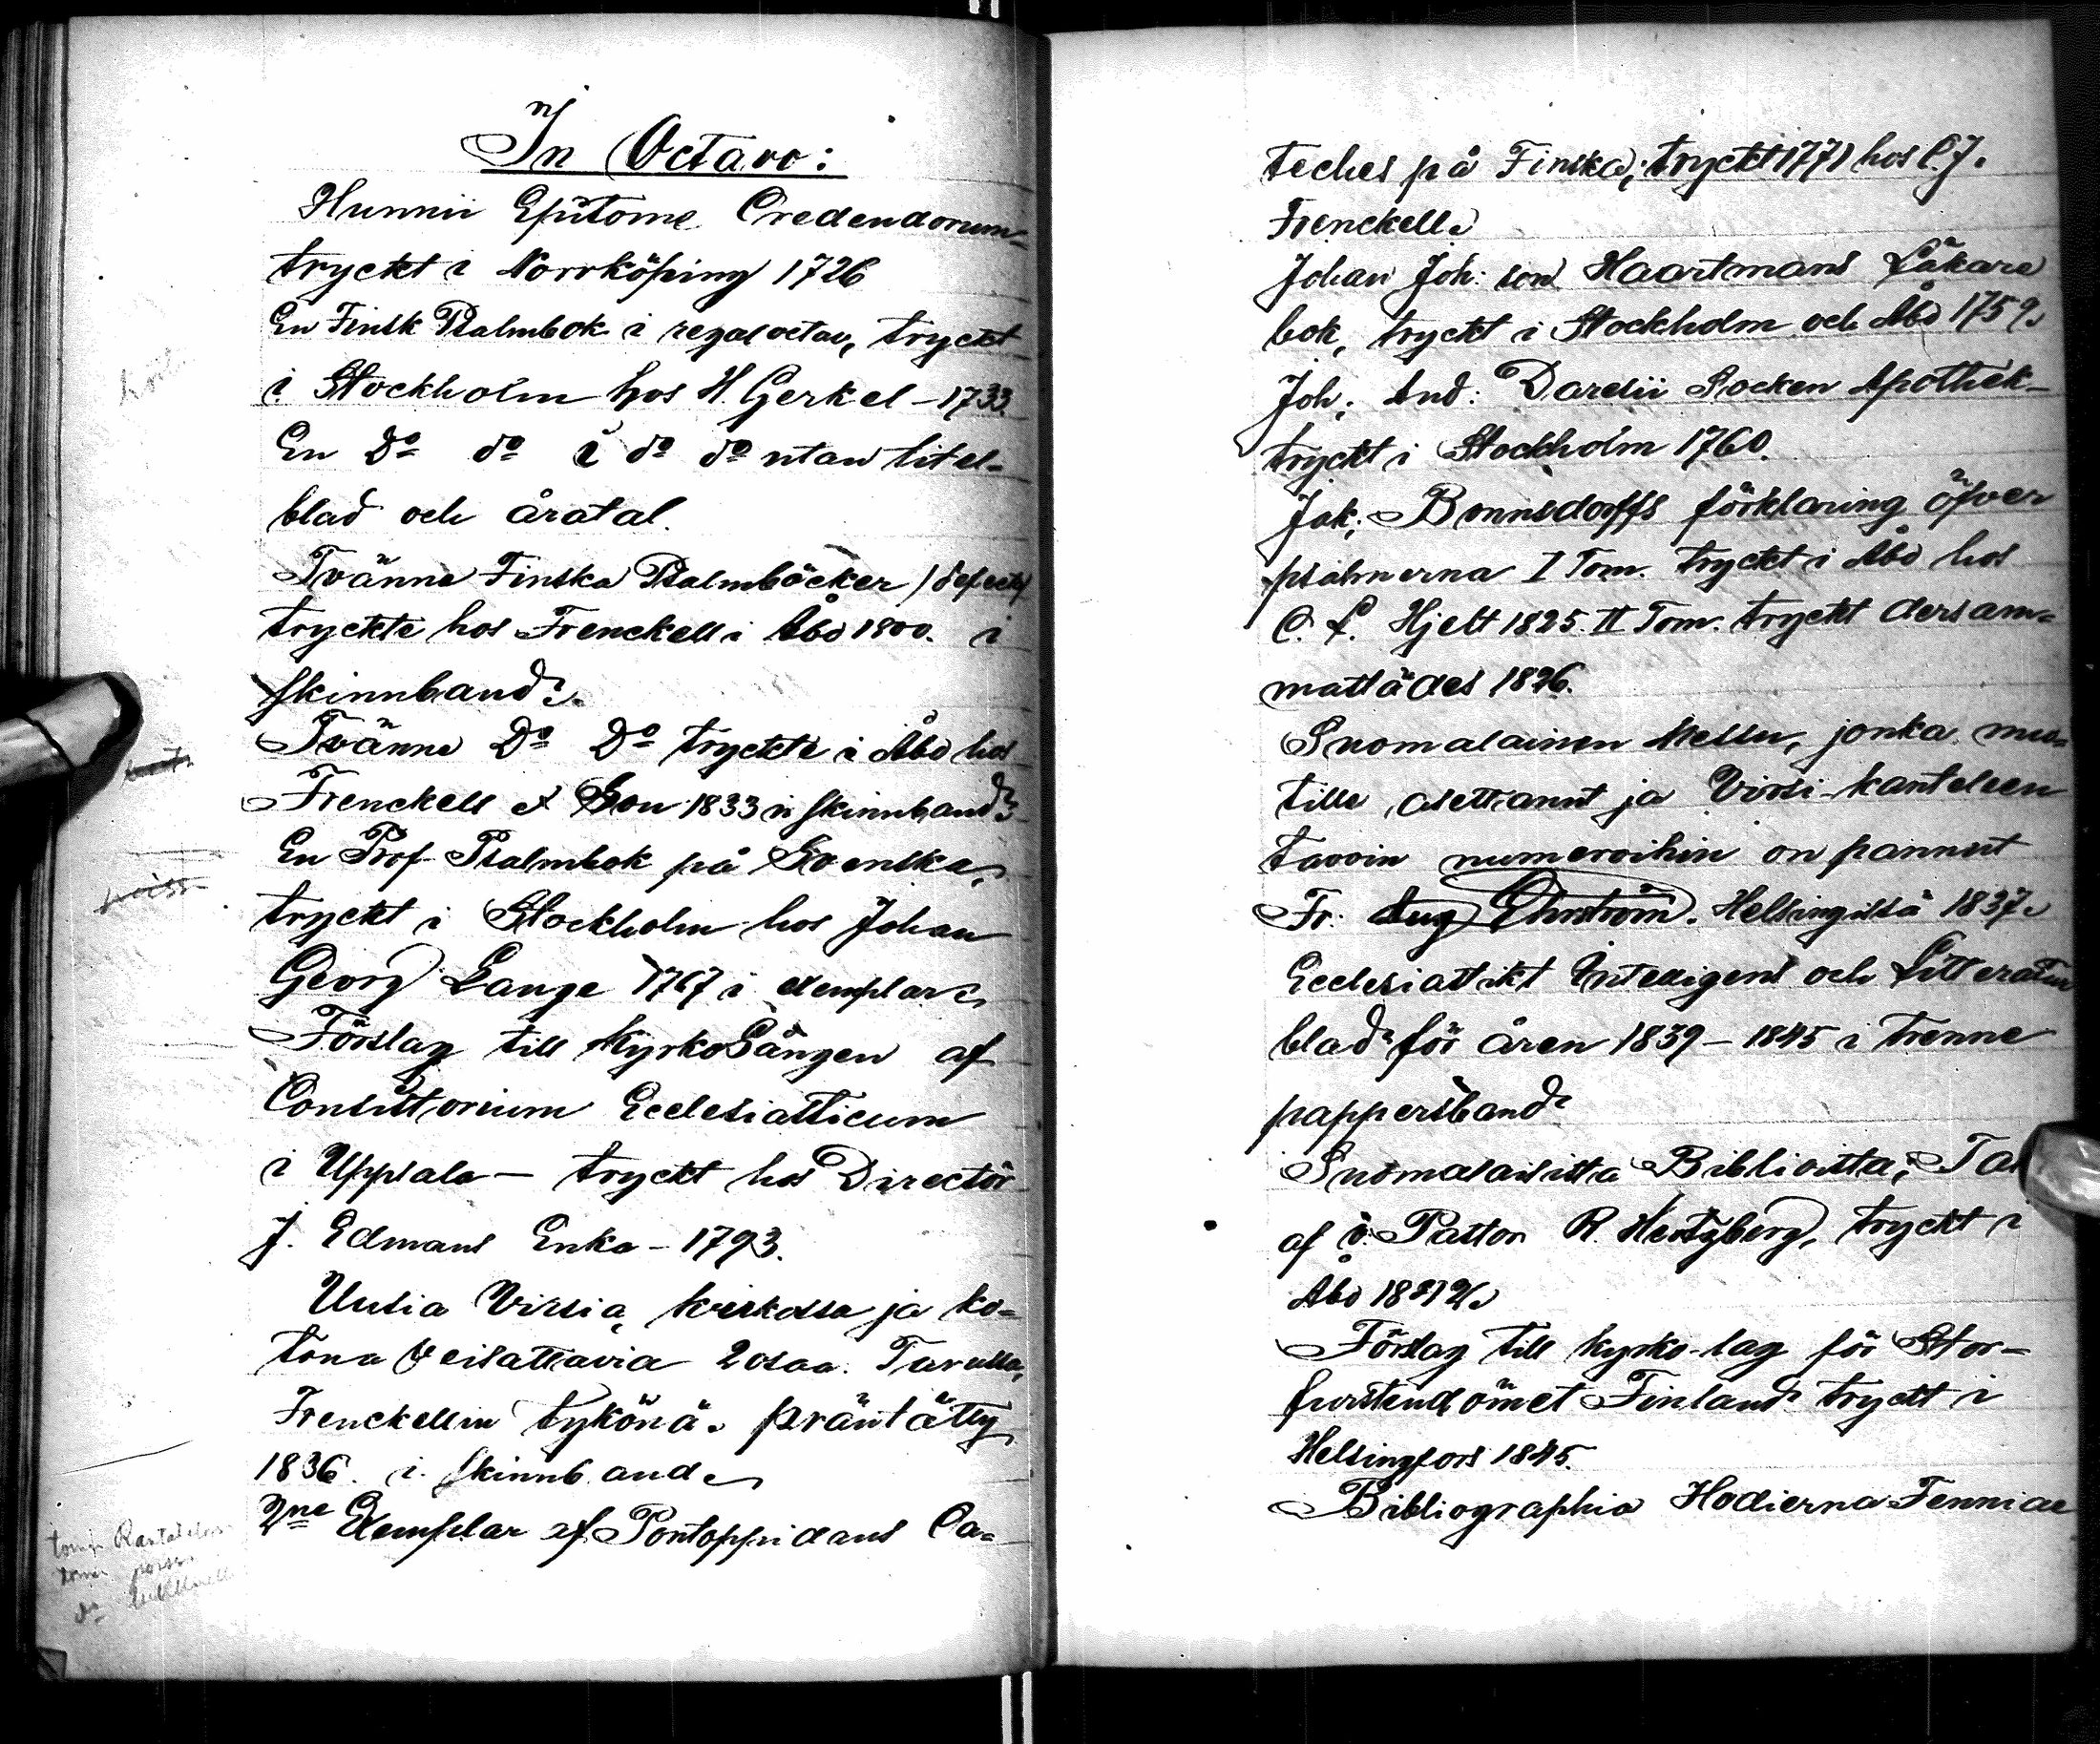 In Octavo:
Hunnii Epitome Credendorum-
tryckt i Norrköping 1726
En Finsk Psalmbok i regal octav, tryckt
i Stockholm hos H Gerkel - 1733
En Do do i do do utan titel-
blad och åratal.
Tvänne Finska Psalmböcker /defecta/
tryckte hos Frenckell i Åbo 1800. i
skinnband.
Tvänne Do Do tryckte i Åbo hos
Frenckell et Son 1833 i skinnband
En Prof Psalmbok på Svenska,
tryckt i Stockholm hos Johan
Georg Lange 1767 i exemplar.
Förslag till KyrkoSången af
Consistorium Ecclesiasticum
i Uppsala - tryckt hos Directör
J. Edmans Enka - 1793.
Uusia Virsia, kirkossa ja ko=
tona veisattavia 2 osaa. Turussa,
Frenckellin tykönä. präntätty
1836. i. skinnband.
2ne Exemplar af Pontoppidans Ca=
do
teches på Finska, tryckt 1771 hos C. J.
Frenckell.
Johan Joh: son Haartmans Läkare
bok, tryckt i Stockholm och Åbo 1759.
Joh. And: Darelii Socken Apothek-
tryckt i Stockholm 1760.
Jak: Bonnsdorffs förklaring öfver
psalmerna I Tom. tryckt i Åbo hos
C. L. Hjelt 1825. II Tom. tryckt dersam=
mastädes 1826.
Suomalainen Messu, jonka nuo=
tille asettanut ja Virsi-kanteleen
tavoin numeroihin on pannut
Fr. Aug Ehrström. Helsingissä 1837.
Ecclesiastikt Intelligens och Litteratur
blad för åren 1839 - 1845 i trenne
pappersband
Suomalaisista Biblioista,
af v. Pastor R. Hertzberg, tryckt i
Åbo
Förslag till kyrko-lag för Stor-
furstendömet Finland tryckt i
Helsingfors 1845.
Bibliographia Hodierna Fenniae